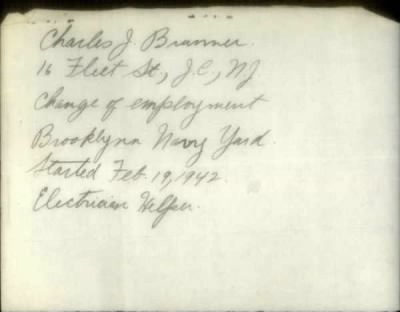 Charles J. Brunner.
16 Fleet St., J.C., NJ
Change of employment
Brooklynn Navy Yard.
Started Feb. 19, 1942.
Electrician Helper.